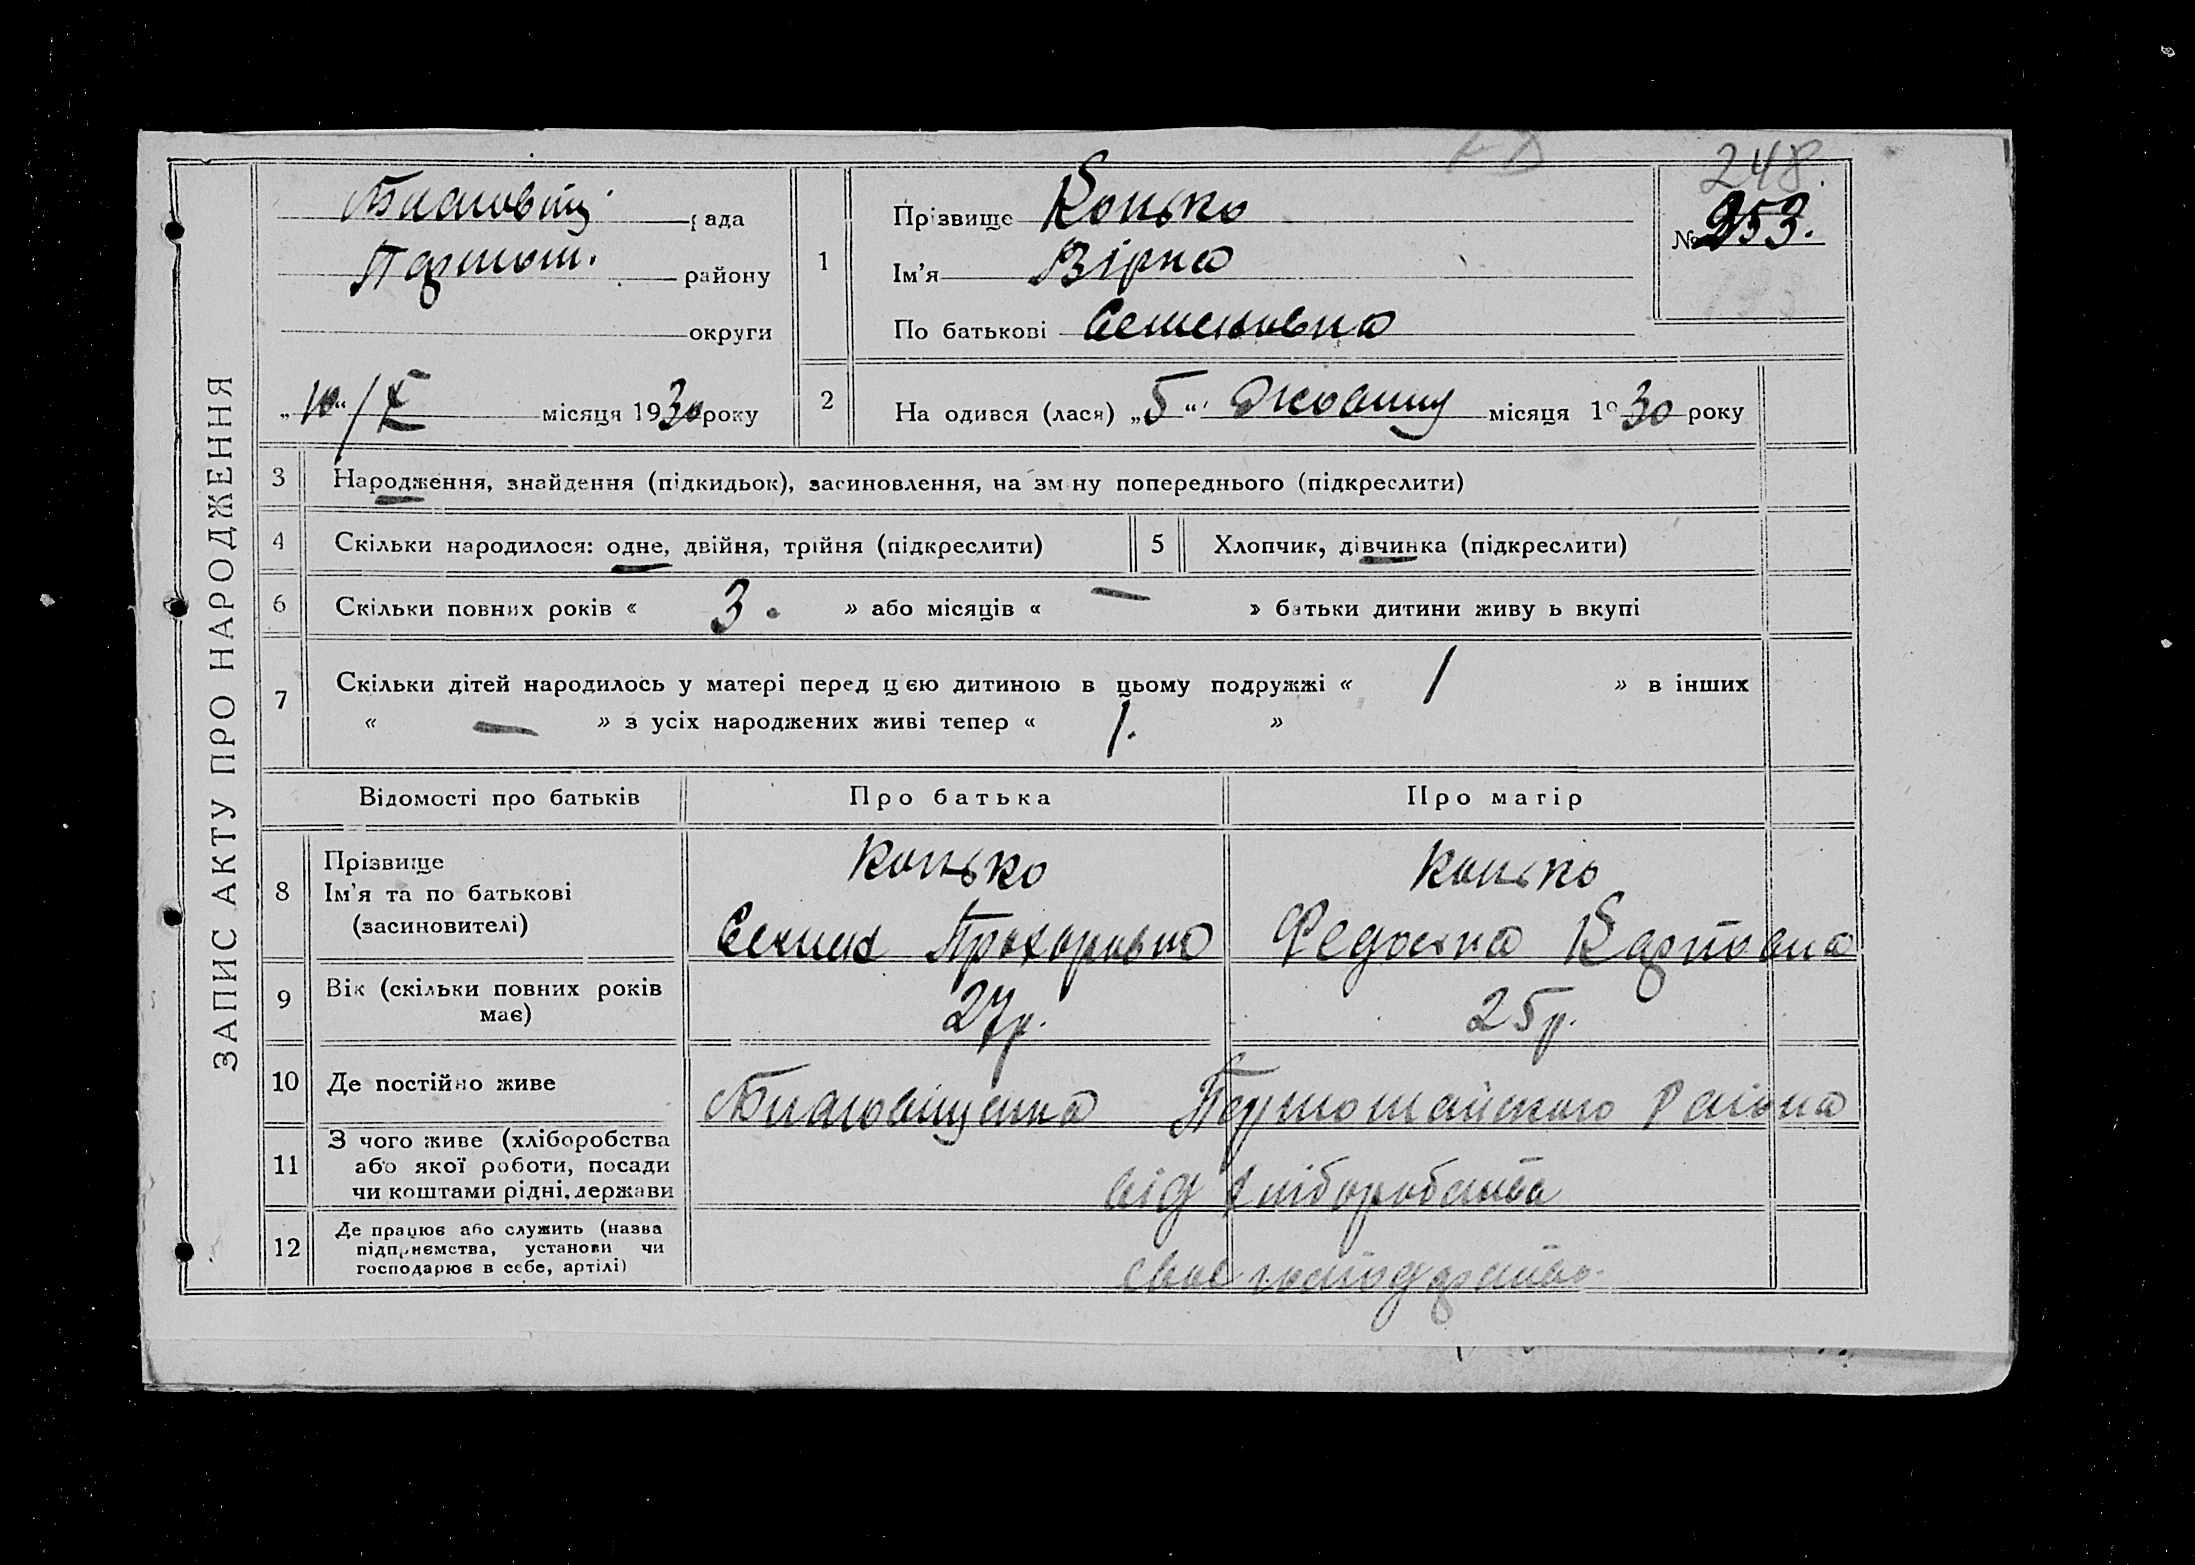 248.
Благовіщ. рада
Первом. району
округи
„10“/X місяця 1930 року
ЗАПИС АКТУ ПРО НАРОДЖЕННЯ
1
Прізвище Конько
Ім’я Вірка
По батькові Семеновна
№ 253.
2 На одився (лася) „5“ Жовтня місяця 1930 року
3 Народження, знайдення (підкидьок), засиновлення, на зміну попереднього (підкреслити)
4 Скільки народилося: одне, двійня, трійня (підкреслити) 5 Хлопчик, дівчинка (підкреслити)
6 Скільки повних років « 3. » або місяців « — » батьки дитини живу ь вкупі
7 Скільки дітей народилось у матері перед цією дитиною в цьому подружжі « 1 » в інших
« — » з усіх народжених живі тепер « 1. »
Відомості про батьків Про батька Про матір
8 Прізвище
Ім’я та по батькові
(засиновителі)
Конько
Семен
Конько
Федоска Карповна
9 Вік (скільки повних років
має)
27р. 25р.
10 Де постійно живе Благовіщенка Первомайского Района
11 З чого живе (хліборобства
або якої роботи, посади
чи коштами рідні, держави
від хліборобства
12 Де працює або служить (назва
підприємства, установи чи
господарює в себе, артілі)
своє господарство.